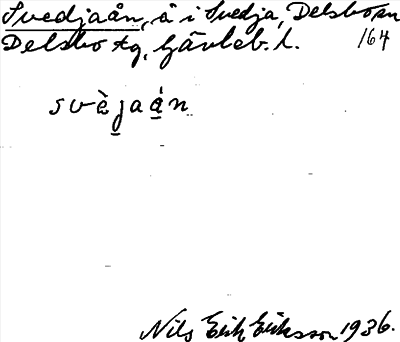 Svedjaån, å i Svedja, Delsbo sn
Delsbo tg, Gävleb. l. 164
svè̱jaá̱n
Nils Erik Eriksson 1936.